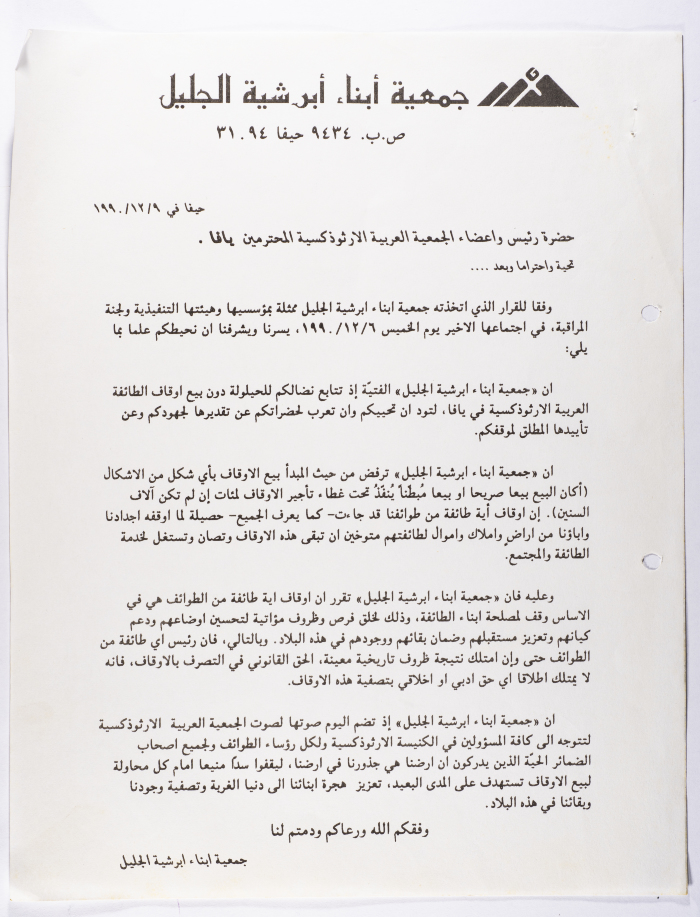 جمعية أبناء أبرشية الجليل
ص.ب. ٩٤٣٤ حيفا ٣١٠٩٤
حيفا في ١٩٩٠/١٢/٩
حضرة رئيس واعضاء الجمعية العربية الارثوذكسية المحترمين يافا .
تحية واحتراما وبعد ....
وفقا للقرار الذي اتخذته جمعية ابناء ابرشية الجليل ممثلة بمؤسسيها وهيئتها التنفيذية ولجنة
المراقبة، في اجتماعها الاخير يوم الخميس ١٩٩٠/١٢/٦، يسرنا ويشرفنا ان نحيطكم علما بما
يلي:
ان «جمعية ابناء ابرشية الجليل» الفتيّة إذ تتابع نضالكم للحيلولة دون بيع اوقاف الطائفة
العربية الارثوذكسية في يافا، لتود ان تحييكم وان تعرب لحضراتكم عن تقديرها لجهودكم وعن
تأييدها المطلق لموقفكم.
ان «جمعية ابناء ابرشية الجليل» ترفض من حيث المبدأ بيع الاوقاف بأي شكل من الاشكال
(أكان البيع بيعا صريحا او بيعا مُبطّناً يُنفّذُ تحت غطاء تأجير الاوقاف لمئات إن لم تكن آلاف
السنين). إن اوقاف أية طائفة من طوائفنا قد جاءت- كما يعرف الجميع- حصيلة لما اوقفه اجدادنا
واباؤنا من اراض واملاك واموال لطائفتهم متوخين ان تبقى هذه الاوقاف وتصان وتستغل لخدمة
الطائفة والمجتمع.
وعليه فان «جمعية ابناء ابرشية الجليل» تقرر ان اوقاف اية طائفة من الطوائف هي في
الاساس وقف لمصلحة ابناء الطائفة، وذلك لخلق فرص وظروف مؤاتية لتحسين اوضاعهم ودعم
كيانهم وتعزيز مستقبلهم وضمان بقائهم ووجودهم في هذه البلاد. وبالتالي، فان رئيس اي طائفة من
الطوائف حتى وإن امتلك نتيجة ظروف تاريخية معينة، الحق القانوني في التصرف بالاوقاف، فانه
لا يمتلك اطلاقا اي حق ادبي او اخلاقي بتصفية هذه الاوقاف.
ان «جمعية ابناء ابرشية الجليل» إذ تضم اليوم صوتها لصوت الجمعية العربية الارثوذكسية
لتتوجه الى كافة المسؤولين في الكنيسة الارثوذكسية ولكل رؤساء الطوائف ولجميع اصحاب
الضمائر الحيّة الذين يدركون ان ارضنا هي جذورنا في ارضنا، ليقفوا سدّا منيعا امام كل محاولة
لبيع الاوقاف تستهدف على المدى البعيد، تعزيز هجرة ابنائنا الى دنيا الغربة وتصفية وجودنا
وبقائنا في هذه البلاد.
وفقكم الله ورعاكم ودمتم لنا
جمعية ابناء ابرشية الجليل